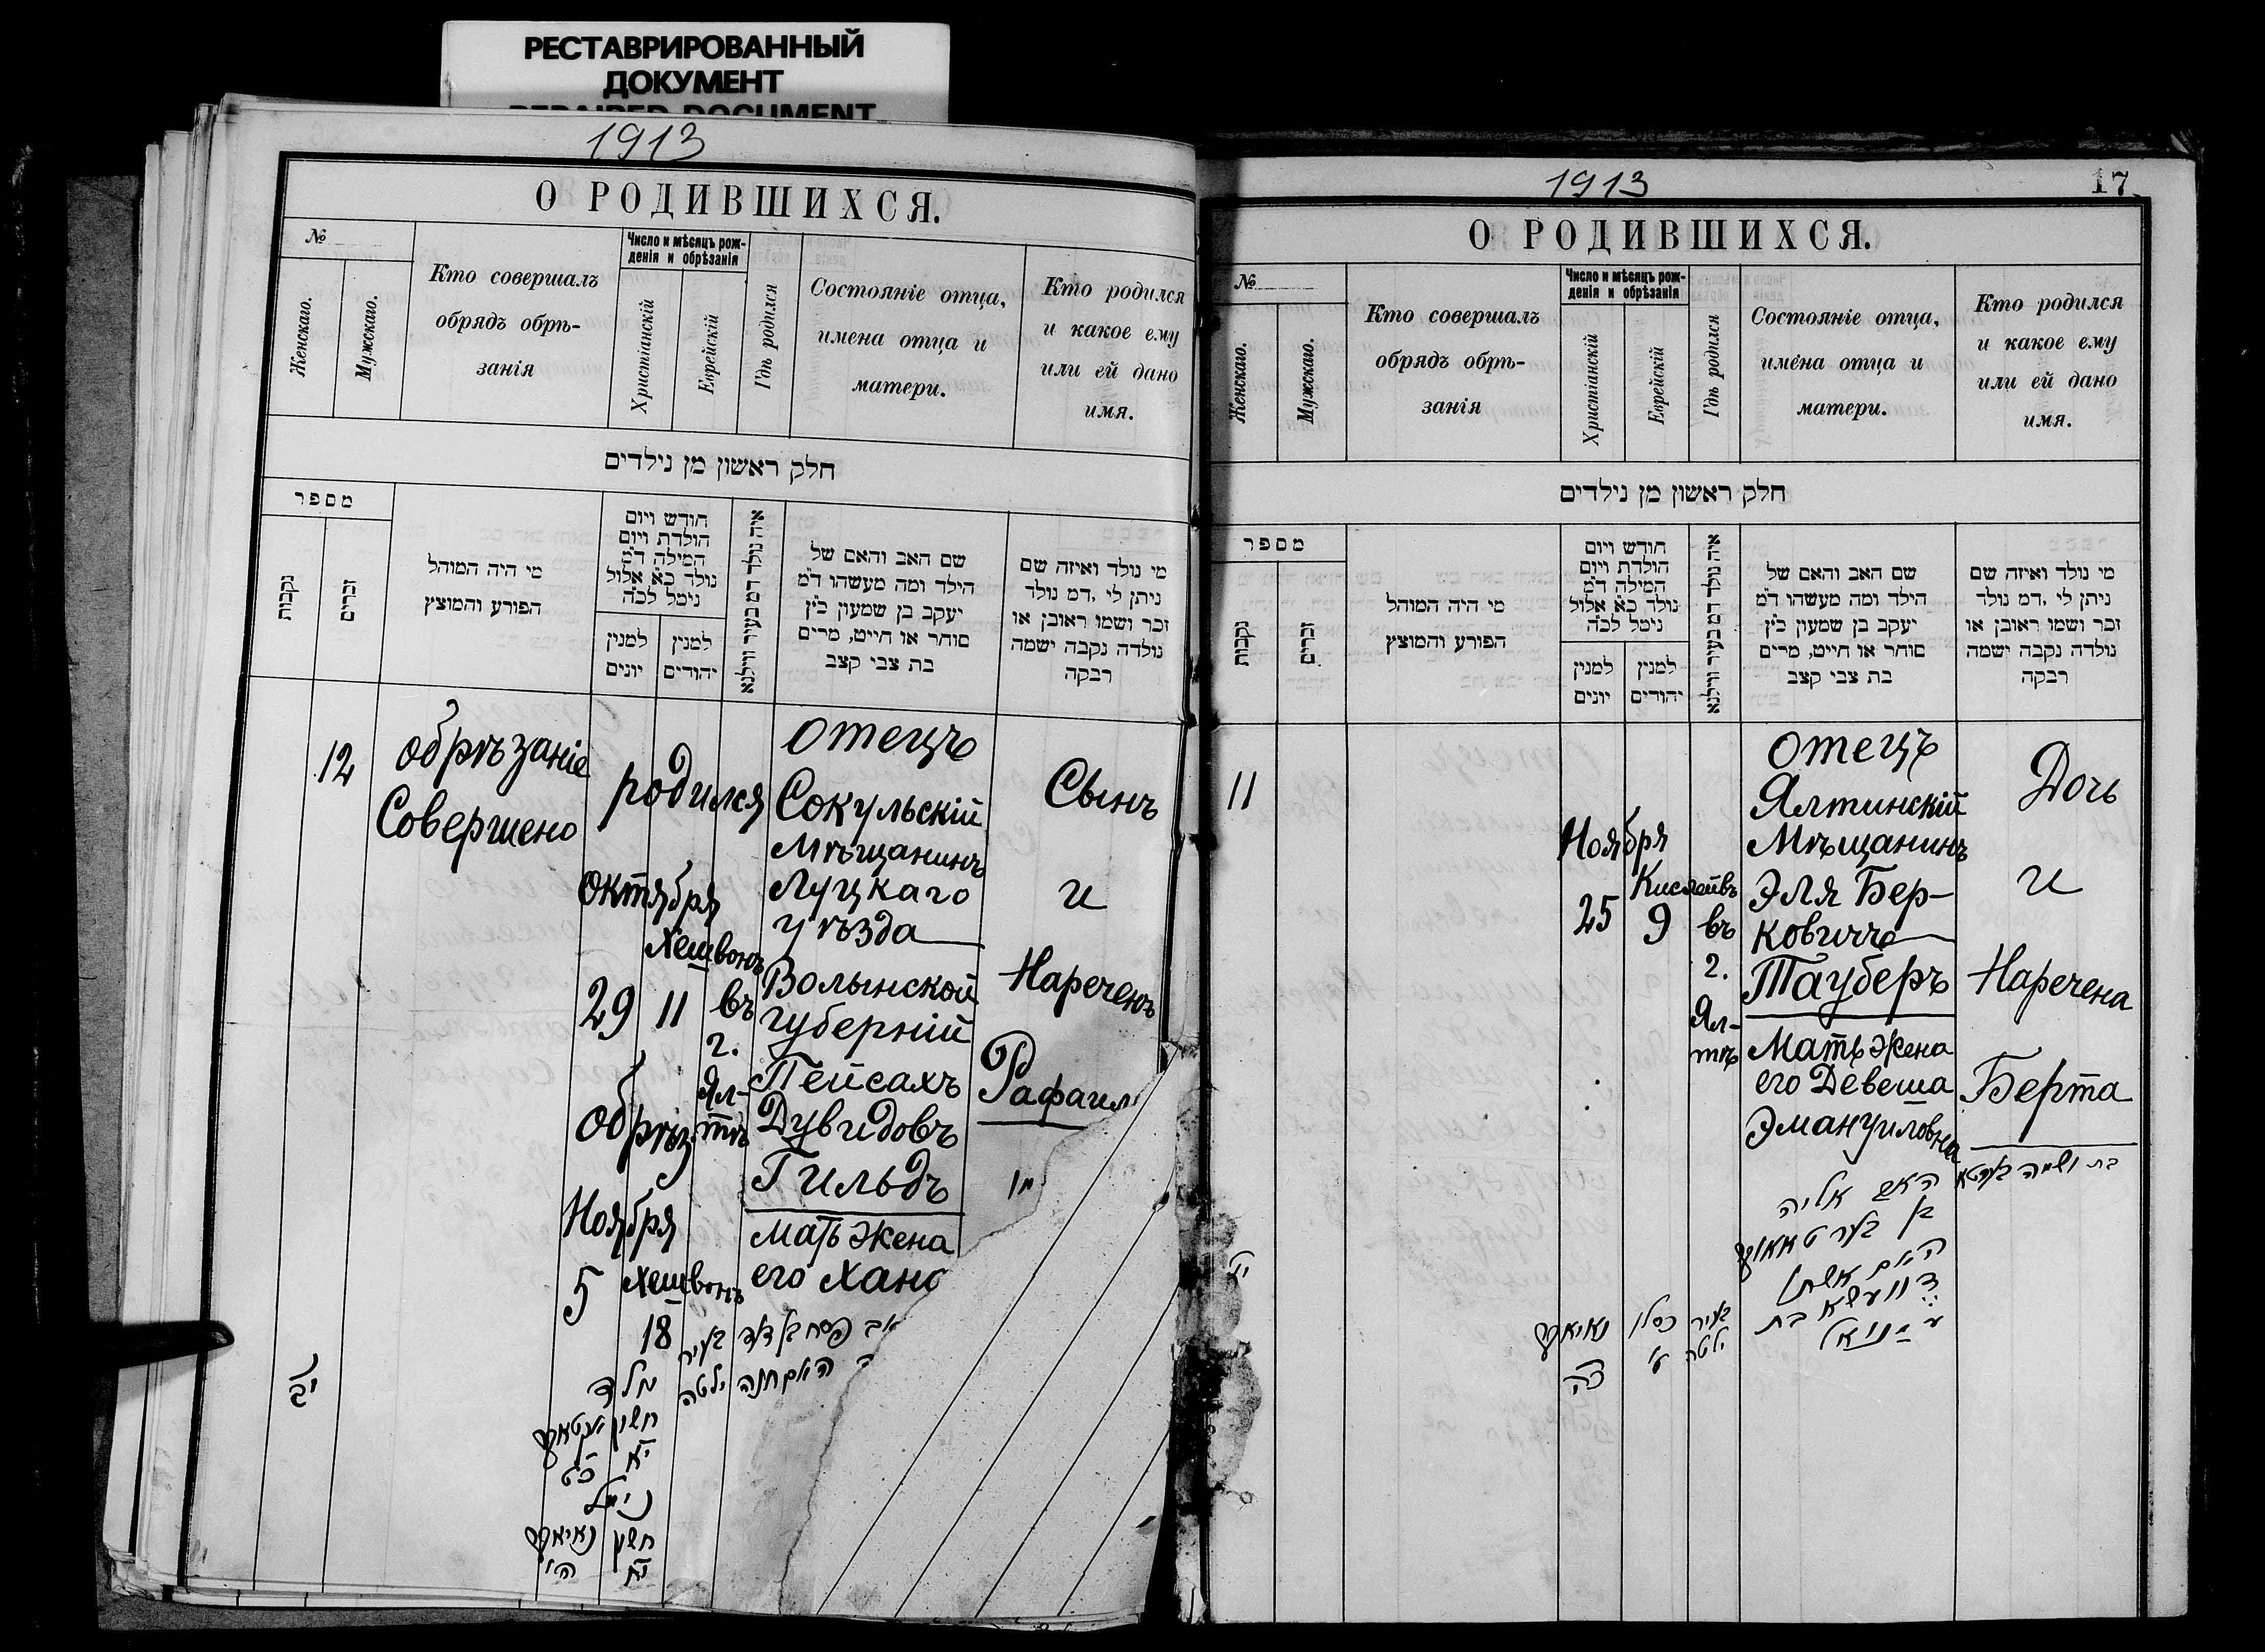 РЕСТАВРИРОВАННЫЙ
ДОКУМЕНТ
REPAIRED DOCUMENT
1913
О РОДИВШИХСЯ.
№
Женскаго.
Мужскаго.
Кто совершалъ
обрядъ обрѣ-
занія
Число и мѣсяцъ рож-
денія и обрѣзанія
Христіанскій
Еврейскій
Гдѣ родился
Состояніе отца,
имена отца и
матери.
Кто родился
и какое ему
или ей дано
имя.
חלק ראשון מן נילדים
מספר
נקבות
זכרים
מי היה המוהל
הפורע והמוצץ
חודש ויום
הולדת ויום
המילה ד״מ
נולד כ״א אלול
נימל לכ״ה
למנין
יונים
למנין
יהודים
איה נולד דמ בעיר ווילנא
שם האב והאם של
הילד ומה מעשהו ד״מ
יעקב בן שמעון כ״ץ
סוחר או חייט, מרים
בת צבי קצב
מי נולד ואיזה שם
ניתן לי, דמ נולד
זכר ושמו ראובן או
נולדה נקבה ישמה
רבקה
12
обрѣзаніе
Совершено
родился
октября
Хешвонъ
29 11 въ
г.
Ял-
тѣ
обрѣз
Ноября
5 Хешвонъ
18
отецъ
Сокульскій
Мѣщанинъ
Луцкаго
уѣзда
Волынской
губерній
Пейсахъ
Дувидовъ
Гильдъ
мать жена
его Хана
Сынъ
и
Нареченъ
Рафаил
יב
אב פסח בן דוד
האם חנה
בעיר
ילטה
נולד
חשון
יא
כט
נימול
חשון
יח
ה
1913
17
О РОДИВШИХСЯ.
№
Женскаго.
Мужскаго.
Кто совершалъ
обрядъ обрѣ-
занія
Число и мѣсяцъ рож-
денія и обрѣзанія
Христіанскій
Еврейскій
Гдѣ родился
Состояніе отца,
имена отца и
матери.
Кто родился
и какое ему
или ей дано
имя.
חלק ראשון מן נילדים
מספר
נקבות
זכרים
מי היה המוהל
הפורע והמוצץ
חודש ויום
הולדת ויום
המילה ד״מ
נולד כ״א אלול
נימל לכ״ה
למנין
יונים
למנין
יהודים
איה נולד דמ בעיר ווילנא
שם האב והאם של
הילד ומה מעשהו ד״מ
יעקב בן שמעון כ״ץ
סוחר או חייט, מרים
בת צבי קצב
מי נולד ואיזה שם
ניתן לי, דמ נולד
זכר ושמו ראובן או
נולדה נקבה ישמה
רבקה
11
Ноября
Кислейвъ
25 9 въ
г.
Ял-
тѣ
отецъ
Ялтинскій
Мѣщанинъ
Эля Бер-
ковичъ
Тауберъ
Мать жена
его Девеша
Эмануиловна
Дочь
и
Наречена
Берта
בת ושמה בערטא
האב אליה
בן בער טאובער
האם אשתו
דוועשא בת
עמנואל
בעיר
ילטה
כסלו
ט
כה